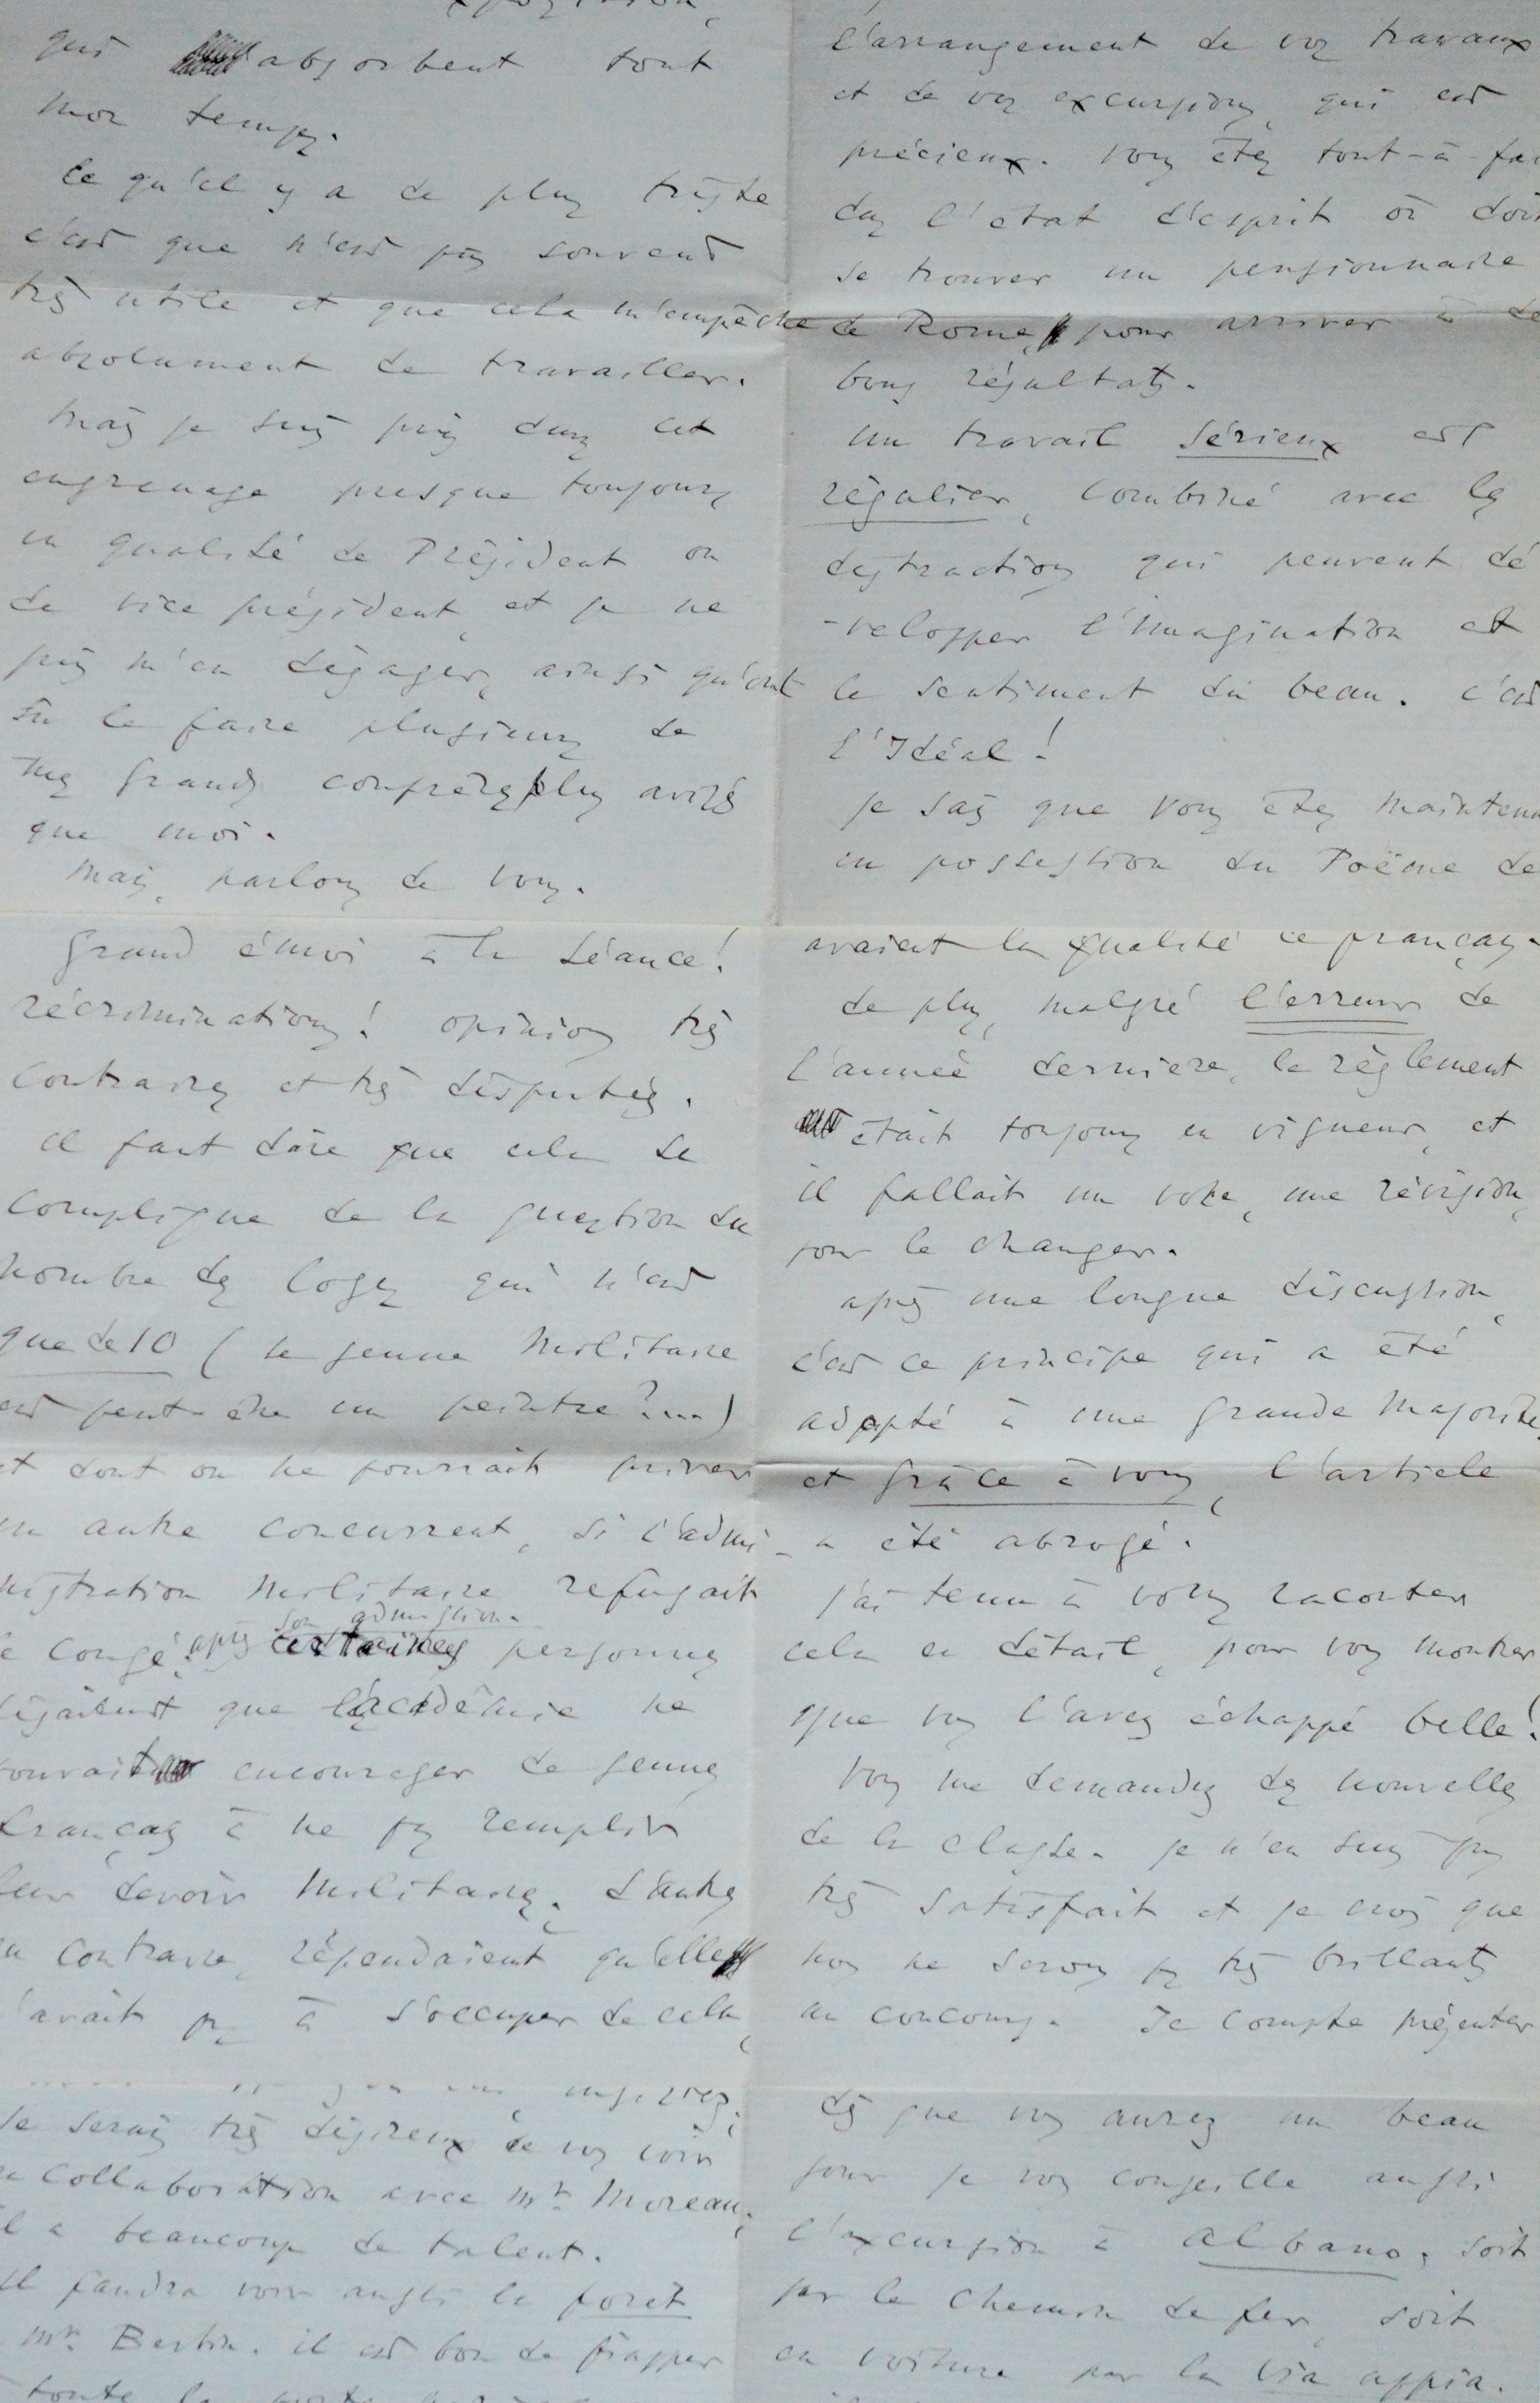 qui absorbent tout
mon temps.
Ce qu'il y a de plus triste
c'est que n'est pas souvent
très utile et que cela m'empêche
absolument de travailler.
Mais je suis pris dans cet
engrenage presque toujours
en qualité de Président ou
de vice président, et je ne
puis m'en dégager, ainsi qu'ont
su le faire plusieurs de
mes grands confrères plus avisés
que moi.
Mais, parlons de vous.
l'arrangement de vos travaux
et de vos excursions, qui est
précieux. Vous êtes tout-à-fai
dans l'état d'esprit où doit
se trouver un pensionnaire
de Rome, pour arriver à de
bons résultats.
Un travail sérieux est
régulier, combiné avec les
distractions qui peuvent dé
-velopper l'imagination et
le sentiment du beau. C'est
l'Idéal!
Je sais que vous êtes maintena
en possession du Poëme de
Grand émoi à la séance!
récriminations! opinions très
contraires et très disputées.
Il faut dire que cela se
complique de la question du
nombre des loges qui n'est
que de 10 (le jeune militaire
est peut-être un peintre?...)
et dont on ne pourrait priver
un autre concurrent, si l'admi-
nistration militaire refusait
le congé, après son admission.
certaines personnes
disaient que l'académie ne
pouvait encourager de jeunes
français à ne pas remplir
leurs devoirs militaires. D'autres
au contraire, répondaient qu'elle
n'avait pas à s'occuper de cela,
avaient la qualité de français.
de plus, malgré l'erreur de
l'année dernière, le règlement
était toujours en vigueur, et
il fallait un vote, une révision,
pour le changer.
après une longue discussion,
c'est ce principe qui a été
adopté à une grande majorité,
et grâce à vous, l'article
a été abrogé.
J'ai tenu à vous raconter
cela en détail, pour vous montrer
que vous l'avez échappé belle!
Vous me demandez des nouvelles
de la classe. Je n'en suis pas
très satisfait et je crois que
nous ne serons pas très brillants
au concours. Je compte présenter
Je serais très désireux de vous voir
en collaboration avec Mr. Moreau;
il a beaucoup de talent.
Il faudra voir aussi la forêt
Mr. Bertin. il est bon de frapper
dès que vous aurez un beau
jour je vous conseille aussi
l'excursion à Albano, soit
par le chemin de fer, soit
en voiture par la via appia.